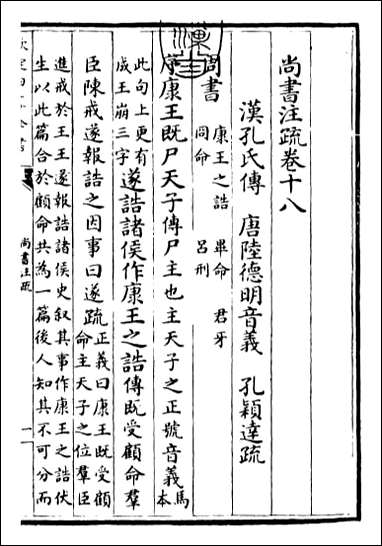 尚書注疏卷十八
漢孔氏傳　唐陸德明音義　孔穎達疏
尚書
康王之誥　畢命　君牙
冏命　呂刑
序康王既尸天子傳尸主也主天子之正號音義馬本
此句上更有
成王崩三字
遂誥諸侯作康王之誥傳既受顧命羣
臣陳戒遂報誥之因事曰遂疏
正義曰康王既受顧
命主天子之位羣臣
進戒於王王遂報誥諸侯史叙其事作康王之誥伏
生以此篇合於顧命共為一篇後人知其不可分而
欽定四庫全書
尚書注疏
一